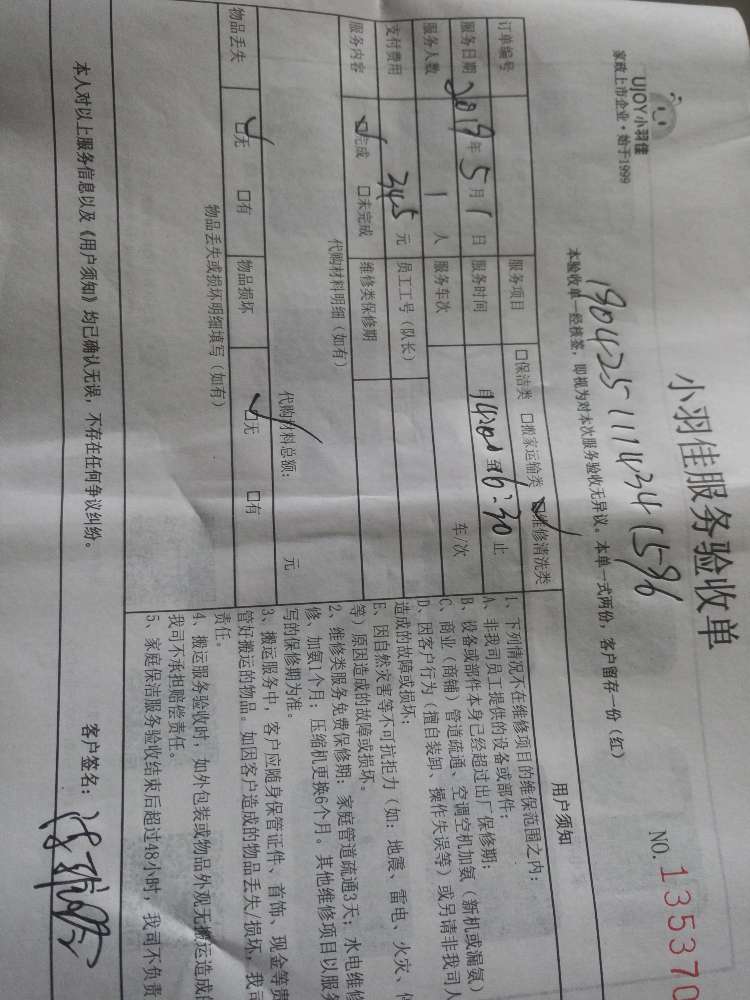 UJOY小羽佳
家政上市企业·始于1999
小羽佳服务验收单
NO. 135370
1904251114341596
本验收单一经核签，即视为对本次服务验收无异议。本单一式两份，客户留存一份（红）
订单编号 服务项目 □保洁类 □搬家运输类 ☑维修清洗类
服务日期 2019年5月1日 服务时间 自14:00至16:30止
服务人数 1人 服务车次 车/次
支付费用 345元 员工工号（队长）
服务内容 ☑完成 □未完成 维修类保修期
代购材料明细（如有）
代购材料总额： 元
物品丢失 ☑无 □有 物品损坏 ☑无 □有
物品丢失或损坏明细填写（如有）
用户须知
1、下列情况不在维修项目的维保范围之内：
A、非我司员工提供的设备或部件；
B、设备或部件本身已经超过出厂保修期；
C、商业（商铺）管道疏通、空调空机加氨（新机或漏氨）
D、因客户行为（擅自装卸、操作失误等）或另请非我司人
造成的故障或损坏；
E、因自然灾害等不可抗拒力（如：地震、雷电、火灾、
等）原因造成的故障或损坏。
2、维修类服务免费保修期：家庭管道疏通3天；水电维修
修、加氨1个月；压缩机更换6个月。其他维修项目以服务
写的保修期为准。
3、搬运服务中，客户应随身保管证件、首饰、现金等贵
管好搬运的物品。如因客户造成的物品丢失/损坏，我司
责任。
4、搬运服务验收时，如外包装或物品外观无搬运造成的
我司不承担赔偿责任。
5、家庭保洁服务验收结束后超过48小时，我司不负责
本人对以上服务信息以及《用户须知》均已确认无误，不存在任何争议纠纷。
客户签名：